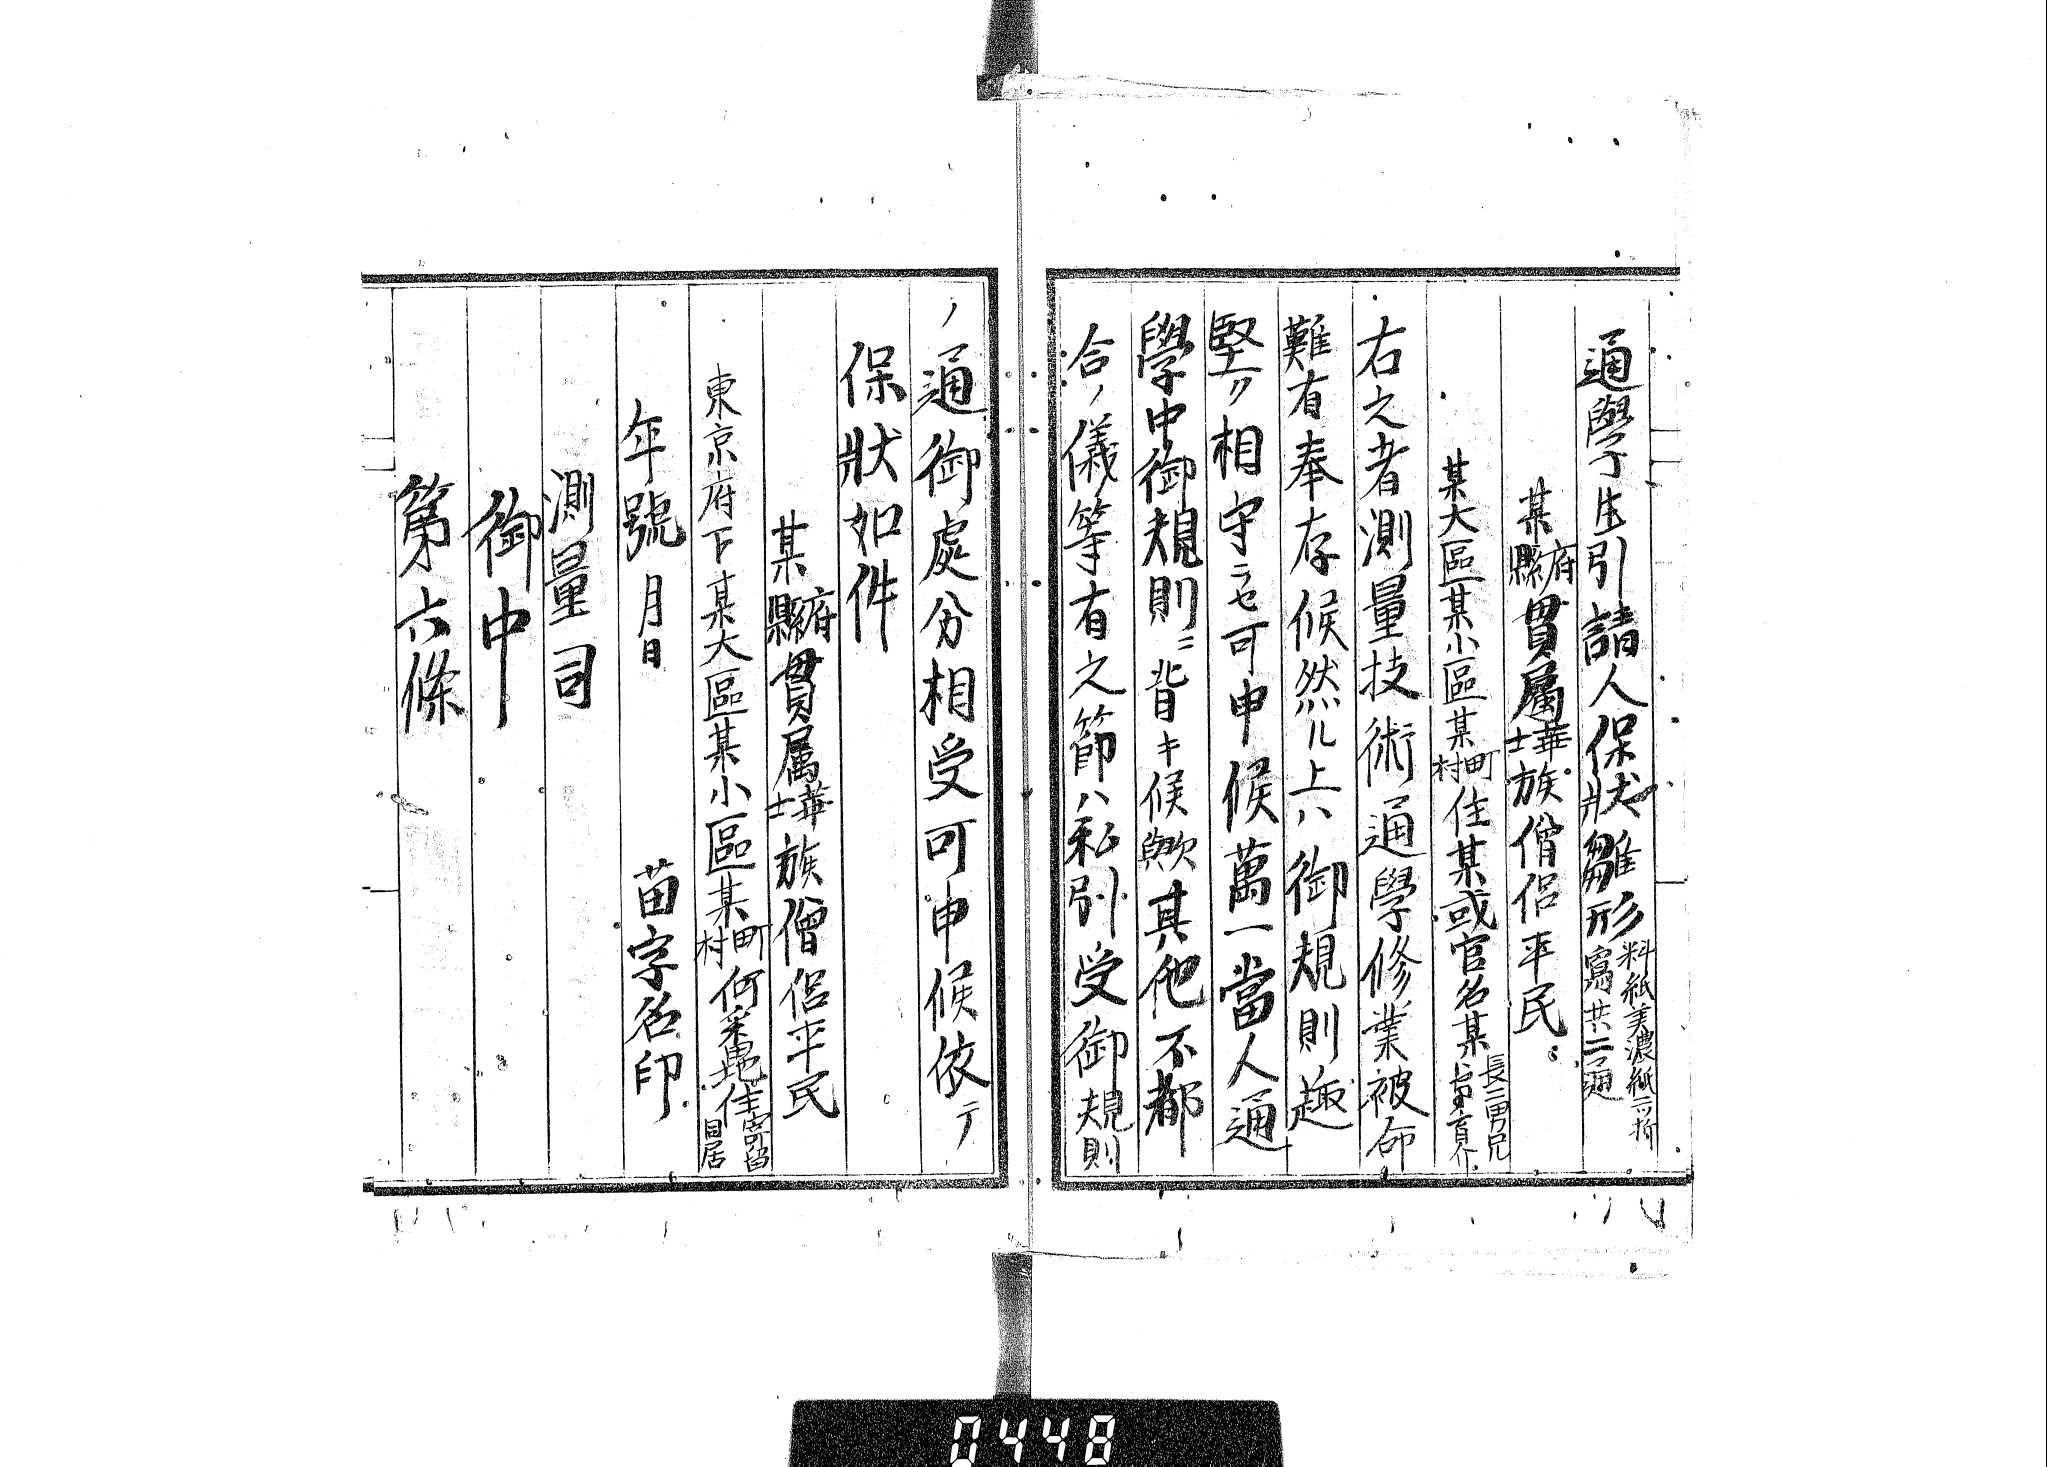 通學生引請人保狀雛形 料紙美濃紙二ツ折 寫共二通
某府縣貫屬華士族僧侶平民
某大區某小區某町村住某或官名某長二男兄
右之者測量技術通學修業被命
難有奉存候然ル上ハ御規則趣
堅ク相守ラセ可申候萬一當人通
學中御規則ニ背キ候歟其他不都
合ノ儀等有之節ハ私引受御規則
ノ通御處分相受可申候依テ
保狀如件
某府縣貫属華士族僧侶平民
東京府下某大區某小區某町村何番地住寄留同居
年號月日 苗字名印
測量司
御中
第六條
0448